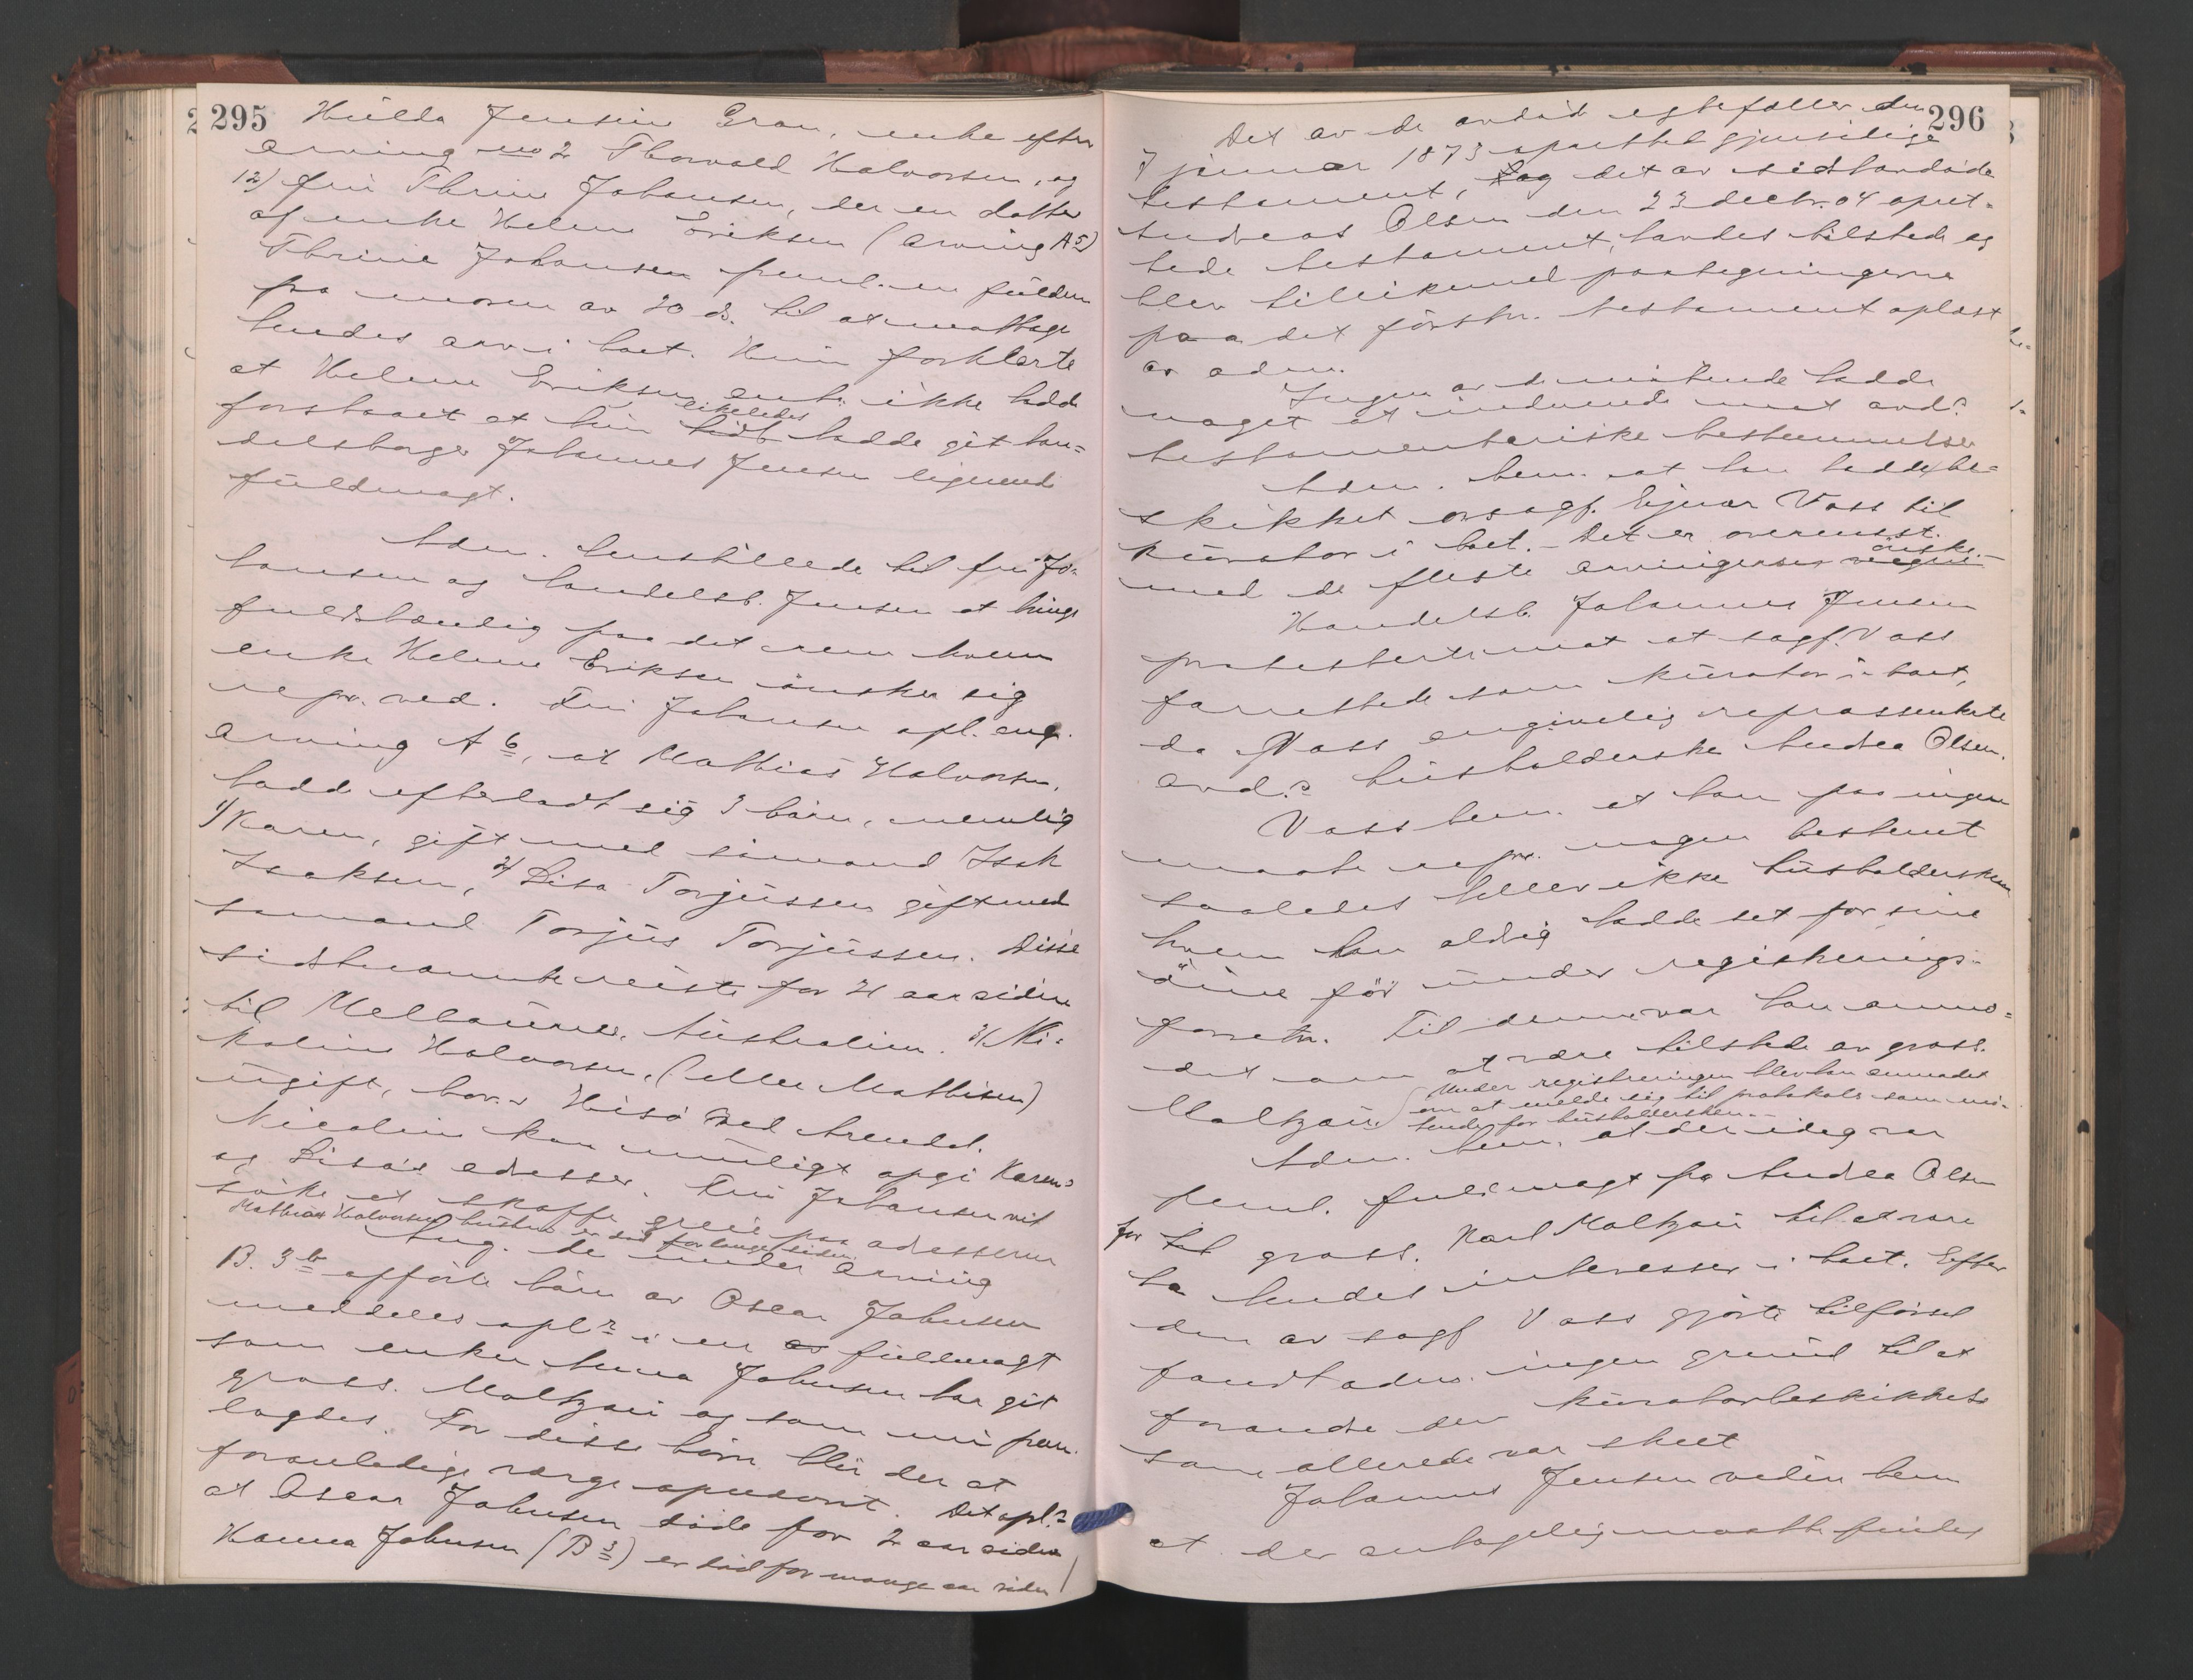 295
Hulda Jensine Gran, enke efter
arving no 2 Thorvald Halvorsen, og
12) fru Thrine Johansen, der en datter
af enke Helene Eriksen (arving A 5)
Thrine Johansen freml. en fuldm
fra moren av 20 ds. til at motta
hendes arv i boet. Hun forklarte
at Helene Eriksen ikke hadde
forstaaet at hun likeledes hadde git han=
delsborger Johannes Jensen lignende
fuldmagt.
Adm. henstillede til fru Jo=
hansen og handelsb. Jensen at bringe
fuldstændig paa det rene hvem
enke Helene Eriksen ønsker sig
repr. ved. Fru Johansen opl. ang.
arving A 6, at Mathias Halvorsen,
hadde efterladt sig 3 børn, nemlig
1) Karen, gift med sømand Isak
Isaksen, 2) Lisa Torjussen gift med
sømand Torjus Torjussen. Disse
sidstnævnte reiste for 21 aar siden
til Melbourne, Australien. 3) Ni=
koline Halvorsen, (eller Mathisen)
ugift, bor. Hisø ved Arendal.
Nicoline kan muligt opgi Karens
og Lisas adresser. Fru Johansen vil
søke at skaffe greie paa adresserne
Mathias Halvorsens hustru er død for lenge siden.
Ang. de under arving
B. 3 b opførte børn av Oscar Johnsen
meddeles opl. i en fuldmagt
som enken Anna Johnsen har git
gross. Maltzau og som nu frem
lagdes. For disse børn blir der at
foranledige værge opnævnt. Det opl.
at Oscar Johnsen døde for 2 aar siden
Hanna Johnsen (B 3) er død for mange aar siden
296
Det av de avdøde egtefæller den
7 januar 1873 oprettet gjensidige
testament, og det av sidstavdøde
Andreas Olsen den 23 decbr. 04 opret=
tede testament, havdes tilstede og
blev tillikemed paategningerne
paa det førstn. testament oplæst
av adm.
Ingen av de møtende hadde
noget at indvende mot avd.
testamentariske bestemmelser
Adm. bem. at han hadde be=
skikket o.r.sagf. Ejnar Vass til
kurator i boet. – Det er overensst.
med de fleste arvingers ønske. –
Handelsb. Johannes Jensen
protesterte mot at sagf. Vass
forrettede som kurator i boet,
da Vass angivelig repræsenterte
avd.s husholderske Andrea Olsen.
Vass bem. at han paa ingen
maate repr. nogen bestemt
saaledes heller ikke husholdersken
hvem han aldrig hadde set for sine
øine før under registrerings=
forretn. Til denne var han anmo=
det om at være tilstede av gross.
Maltzau. Under registreringen blev han anmodet
om at melde sig til protokols som mø=
tende for husholdersken. –
Adm. bem. at der idag var
freml. fuldmagt fra Andrea Olsen
for gross. Karl Maltzau til at vare
ta hendes interesser i boet. Efter
den av sagf Vass gjorte tilførsel
fandt adm. ingen grund til at
forandre den kuratorbeskikkelse
som allerede var skeet
Johannes Jensen videre bem
at der antagelig maatte findes